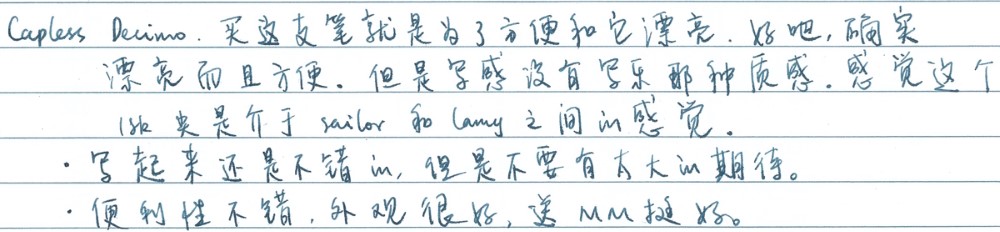 Capless Decimo. 买这支笔就是为了方便和它漂亮. 好吧, 确实
漂亮而且方便. 但是写感没有写乐那种质感. 感觉这个
18k 尖是介于 sailor 和 lamy 之间的感觉.
· 写起来还是不错的, 但是不要有太大的期待。
· 便利性不错, 外观很好, 送MM挺好。